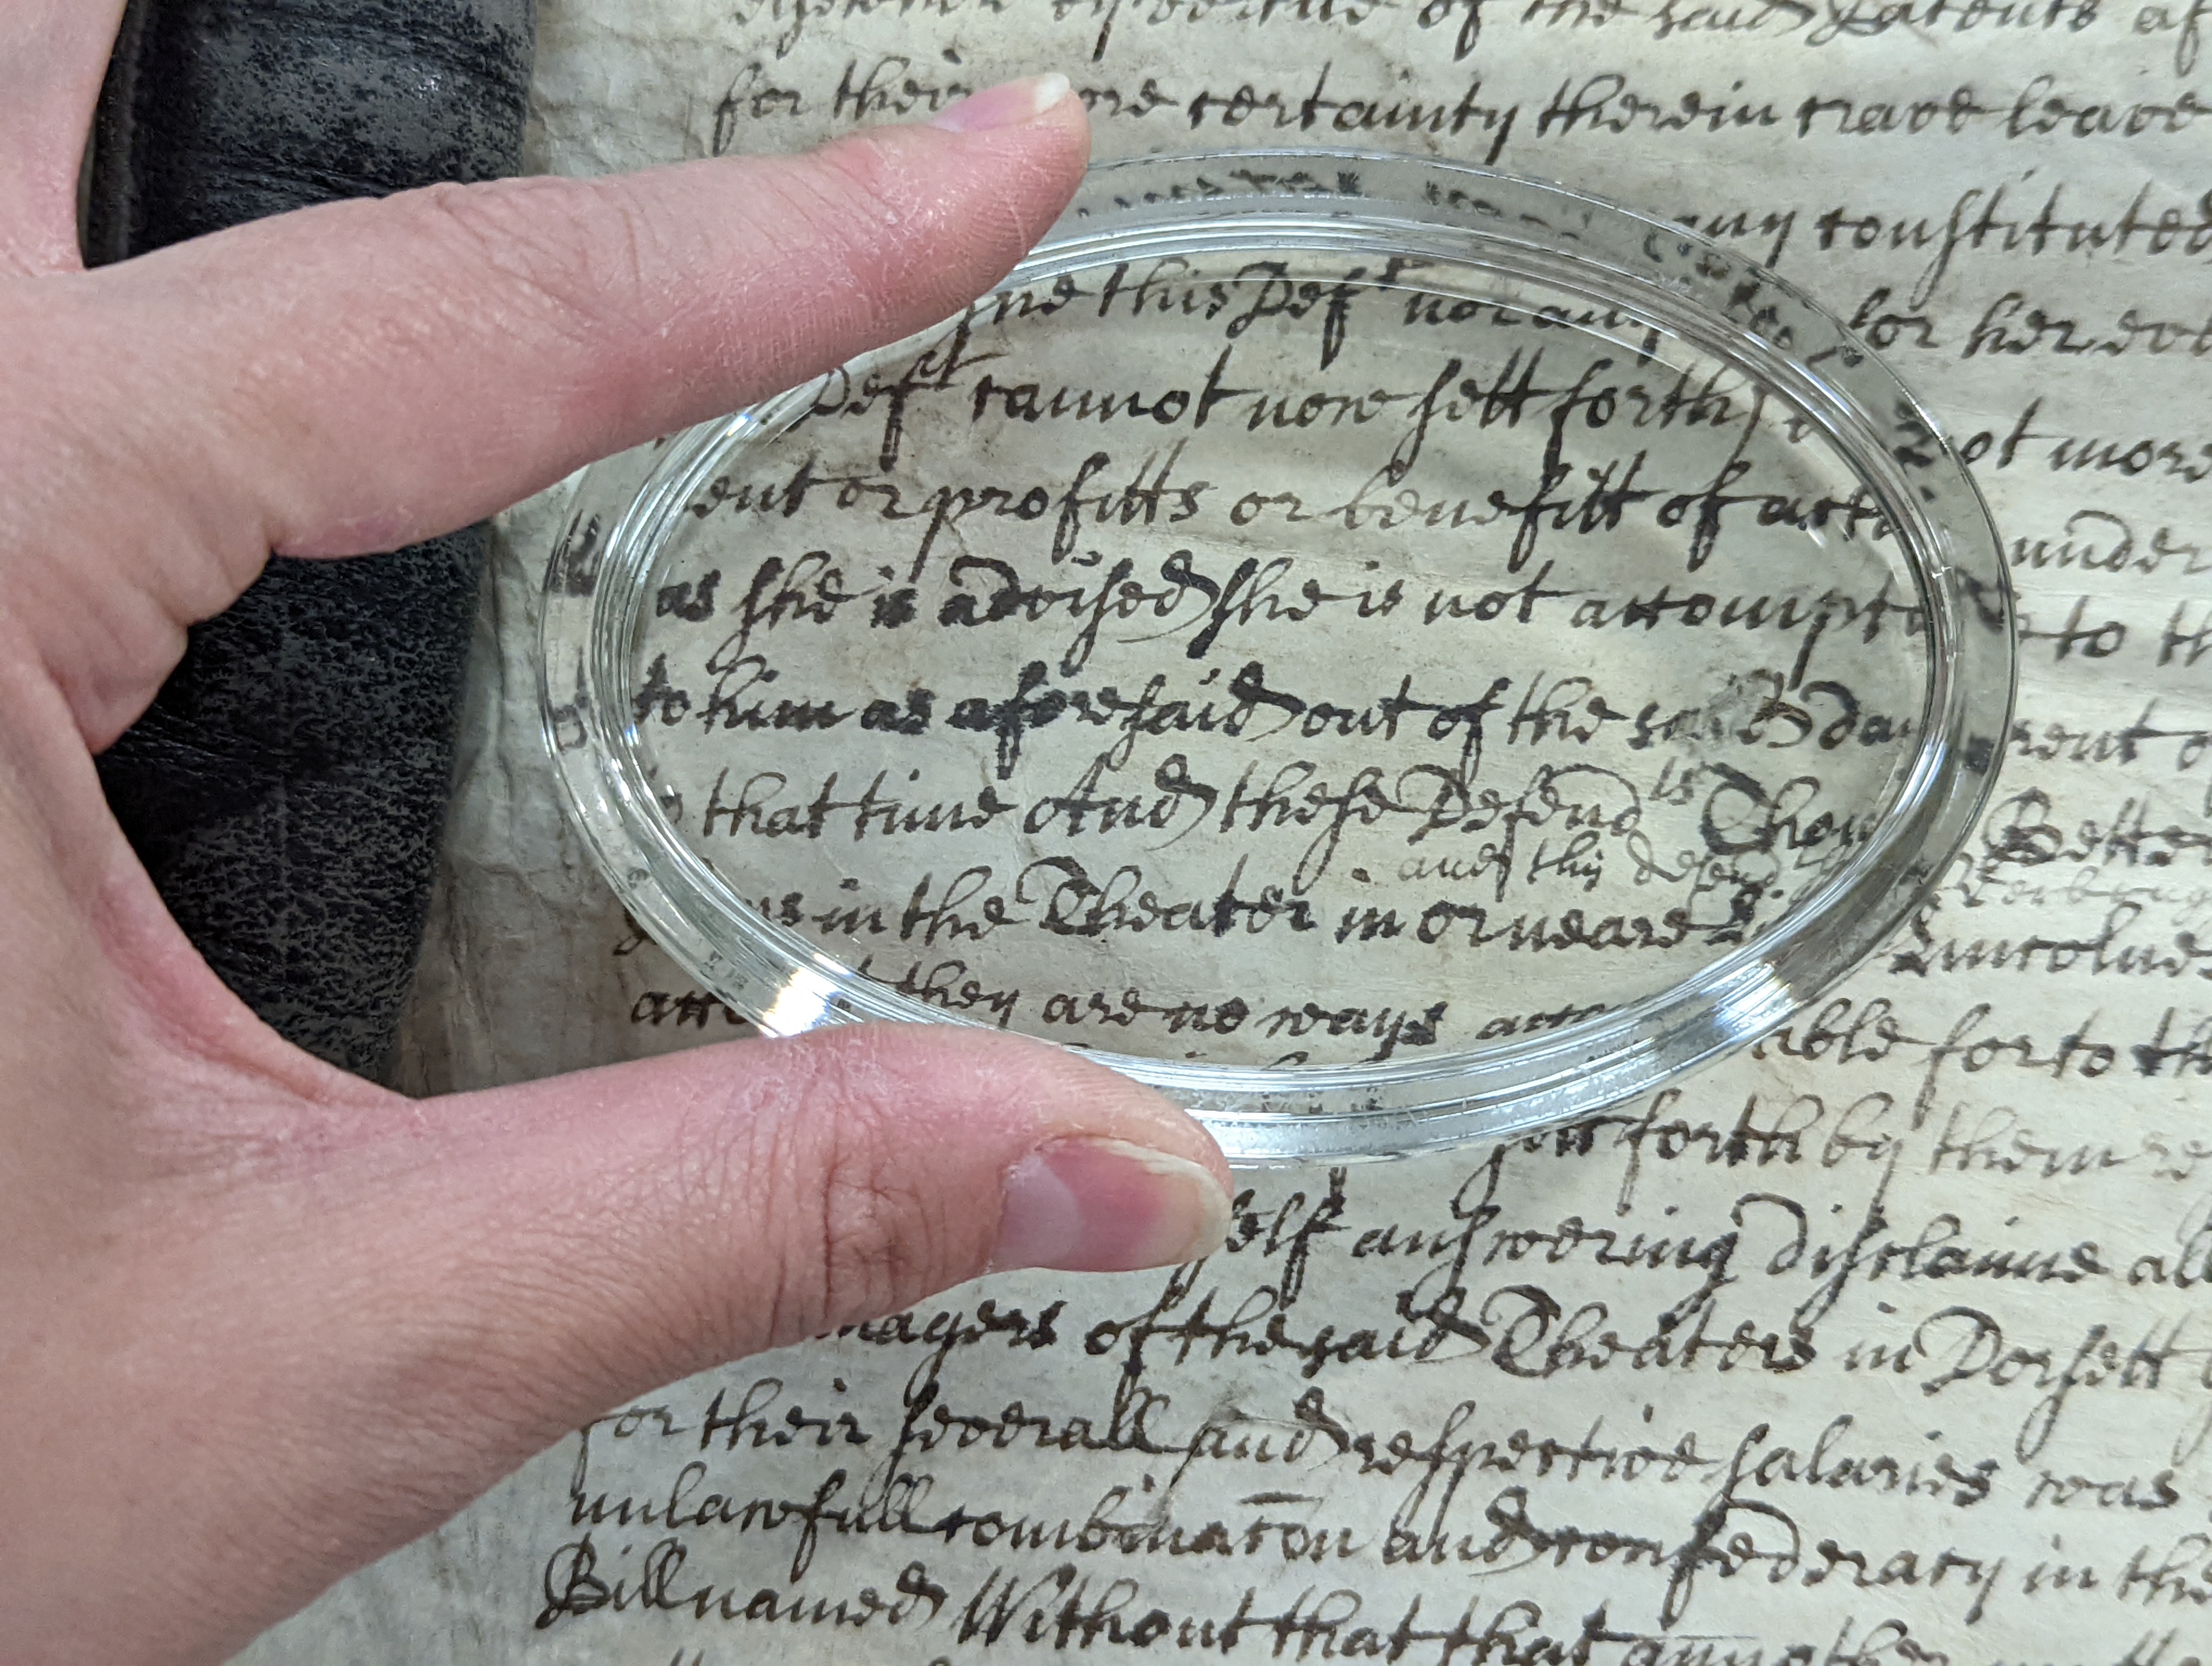 of the said Patents
for their more certainty therein crave leave
any constituted
this Def^t nor any for her
Def^t cannot now sett forth not more
ent or profitts or benefitt of under
as she is advised she is not to th
to him as aforesaid out of the rent
that time And these Defend^ts Bette
and this defend^t
in the Theater in or neare Lincolnes
they are no ways able for to th
forth by them
self answering disclaime all
of the said Theaters in Dorsett
for their severall and respective salaries was
unlawfull combinac̄on and confederacy in the
Bill named Without that that